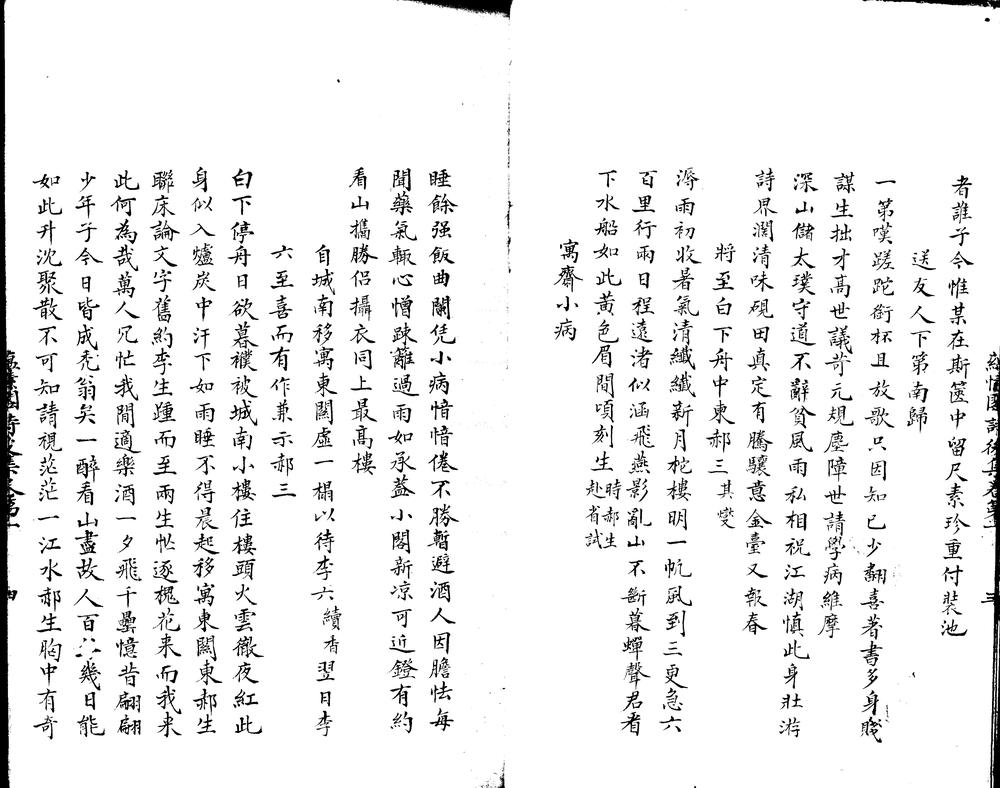 者誰子今惟某在斯篋中留尺素珍重付裝池
送友人下第南歸
一第嘆蹉跎銜杯且放歌只因知己少翻喜著書多身賤
謀生拙才高世議苛元規塵障世請學病維摩
深山儲太璞守道不辭貧風雨私相祝江湖慎此身壯游
詩界濶清味硯田真定有騰驤意金臺又報春
將至白下舟中柬郝三其燮
溽雨初收暑氣清纖纖新月柁樓明一帆風到三更急六
百里行兩日程遠渚似涵飛燕影亂山不斷暮蟬聲君看
下水船如此黃色眉間頃刻生時郝生赴省試
寓齋小病
睡餘强飯曲闌凭小病愔愔倦不勝暫避酒人因膽怯每
聞藥氣輒心憎踈離過雨如承葢小閣新凉可近鐙有約
看山攜勝侶攝衣同上最高樓
自城南移寓東關虛一榻以待李六續香翌日李
六至喜而有作兼示郝三
白下停舟日欲暮襆被城南小樓住樓頭火雲徹夜紅此
身似入爐炭中汗下如雨睡不得晨起移寓東關東郝生
聯床論文字舊約李生踵而至兩生忙逐槐花来而我来
此何為哉萬人冗忙我閒適樂酒一夕飛千觴憶昔翩翩
少年子今日皆成禿翁矣一醉看山盡故人百幾日能
如此升沈聚散不可知請視茫茫一江水郝生胸中有奇